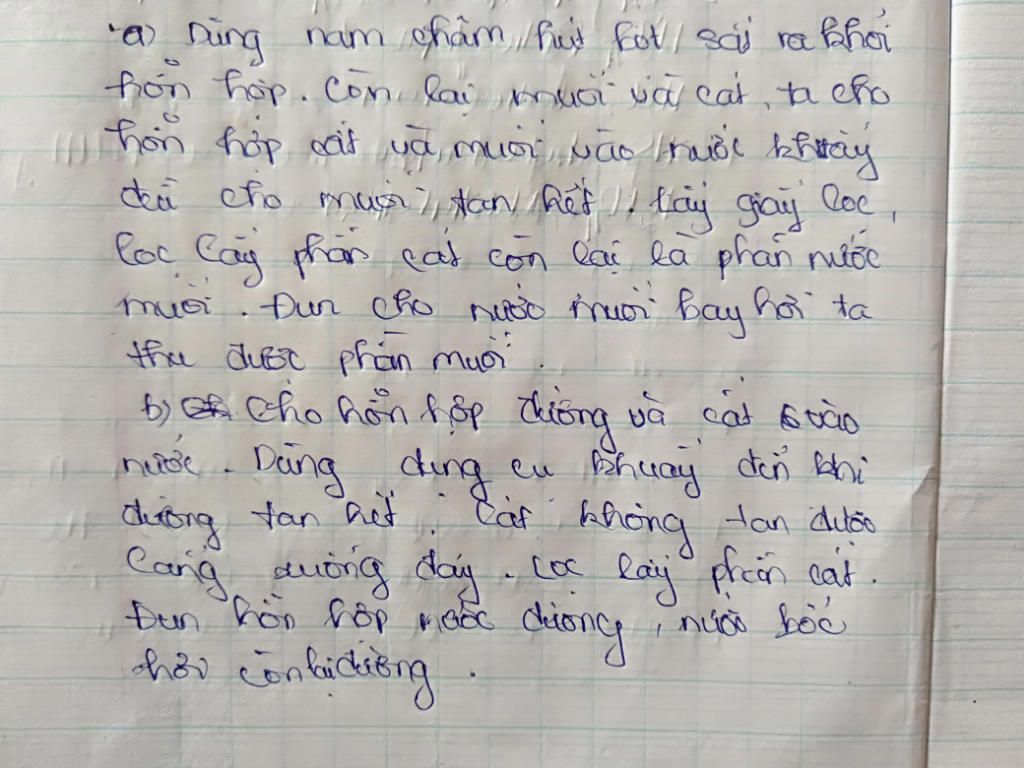 a) Dùng nam châm hút bột sắt ra khỏi
hỗn hợp. Còn lại muối và cát, ta cho
hỗn hợp cát và muối vào nước khuấy
đều cho muối tan hết. Lấy giấy lọc,
lọc lấy phần cát còn lại là phần nước
muối. Đun cho nước muối bay hơi ta
thu được phần muối.
b) Cho hỗn hợp đường và cát vào
nước. Dùng dụng cụ khuấy đến khi
đường tan hết. Cát không tan được
lắng xuống đáy. Lọc lấy phần cát.
Đun hỗn hợp nước đường, nước bốc
hơi còn lại đường.